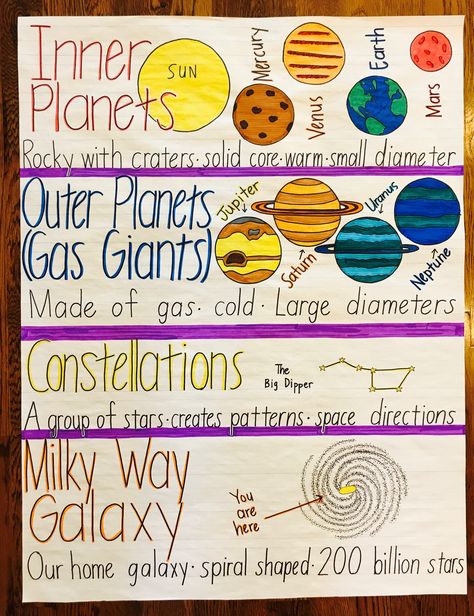 Inner
Planets
SUN
Mercury
Venus
Earth
Mars
Rocky with craters · solid core · warm · small diameter
Outer Planets
(Gas Giants)
Jupiter
Saturn
Uranus
Neptune
Made of gas · cold · Large diameters
Constellations
The
Big Dipper
A group of stars · creates patterns · space directions
Milky Way
Galaxy
You
are
here
Our home galaxy · spiral shaped · 200 billion stars